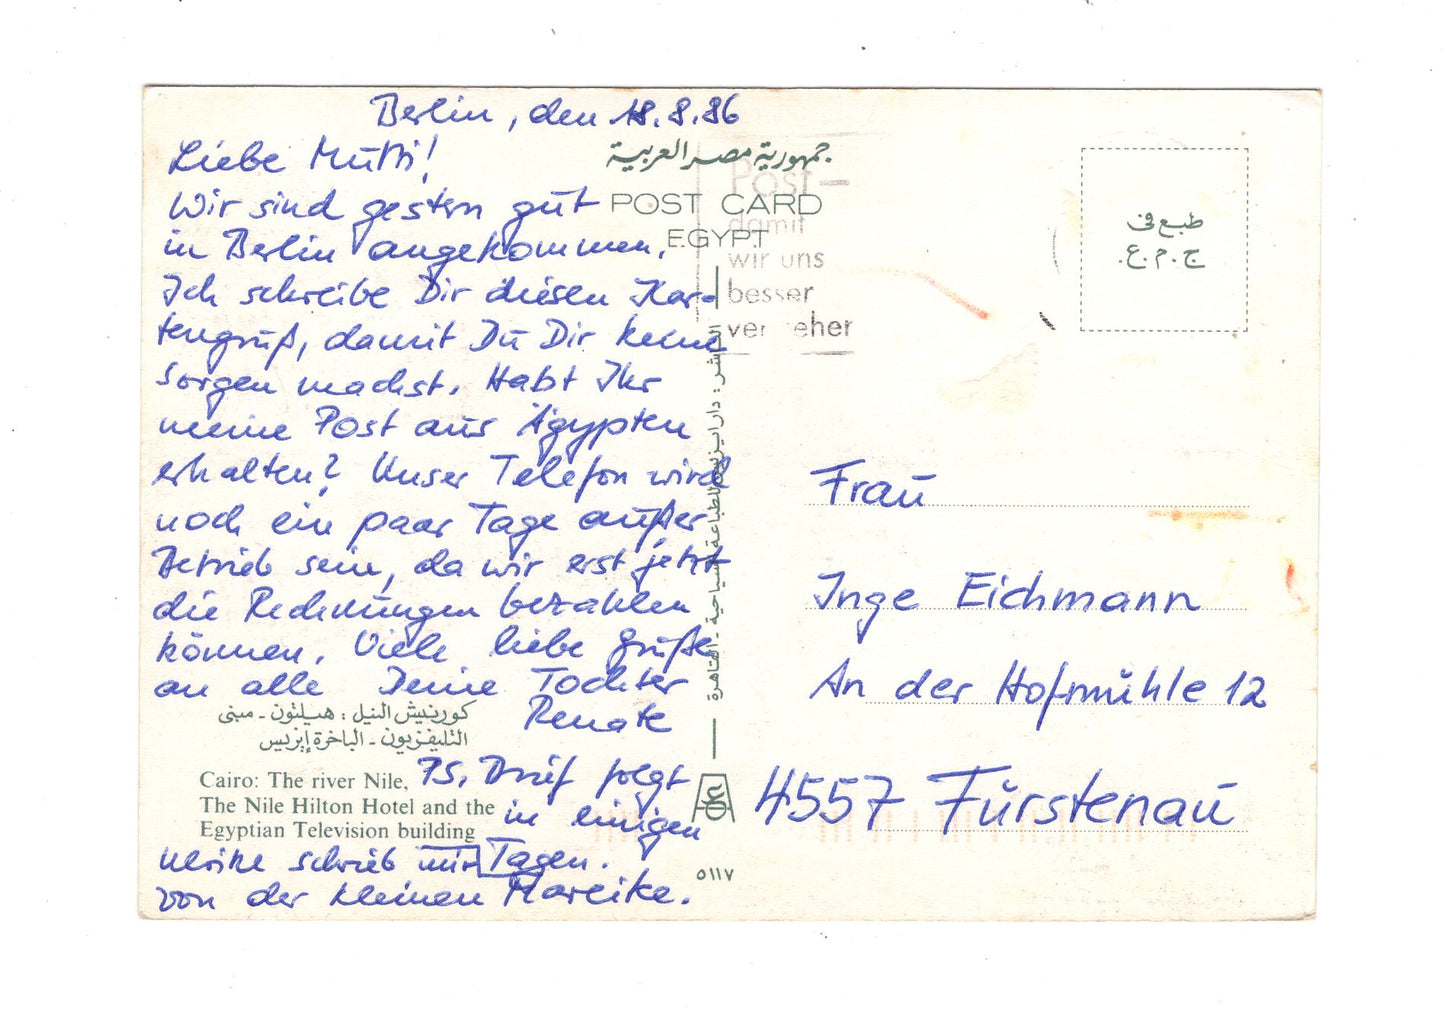 Berlin, den 18.8.86
Liebe Mutti!
Wir sind gestern gut
in Berlin angekommen.
Ich schreibe Dir diesen Kar-
tengruß, damit Du Dir keine
Sorgen machst. Habt Ihr
meine Post aus Ägypten
erhalten? Unser Telefon wird
noch ein paar Tage außer
Betrieb sein, da wir erst jetzt
die Rechnungen bezahlen
können. Viele liebe Grüße
an alle Deine Tochter
Renate
PS. Brief folgt
in einigen
Tagen.
Ulrike schrieb mir
von der kleinen Mareike.
جمهورية مصر العربية
POST CARD
EGYPT
Post-
damit
wir uns
besser
الناشر : دار إيزيس للطباعة السياحية - القاهرة
كورنيش النيل : هيلتون - مبنى
التليفزيون - الباخرة إيزيس
Cairo: The river Nile,
The Nile Hilton Hotel and the
Egyptian Television building
٥١١٧
طبع فى
ج.م.ع.
Frau
Inge Eichmann
An der Hofmühle 12
4557 Fürstenau